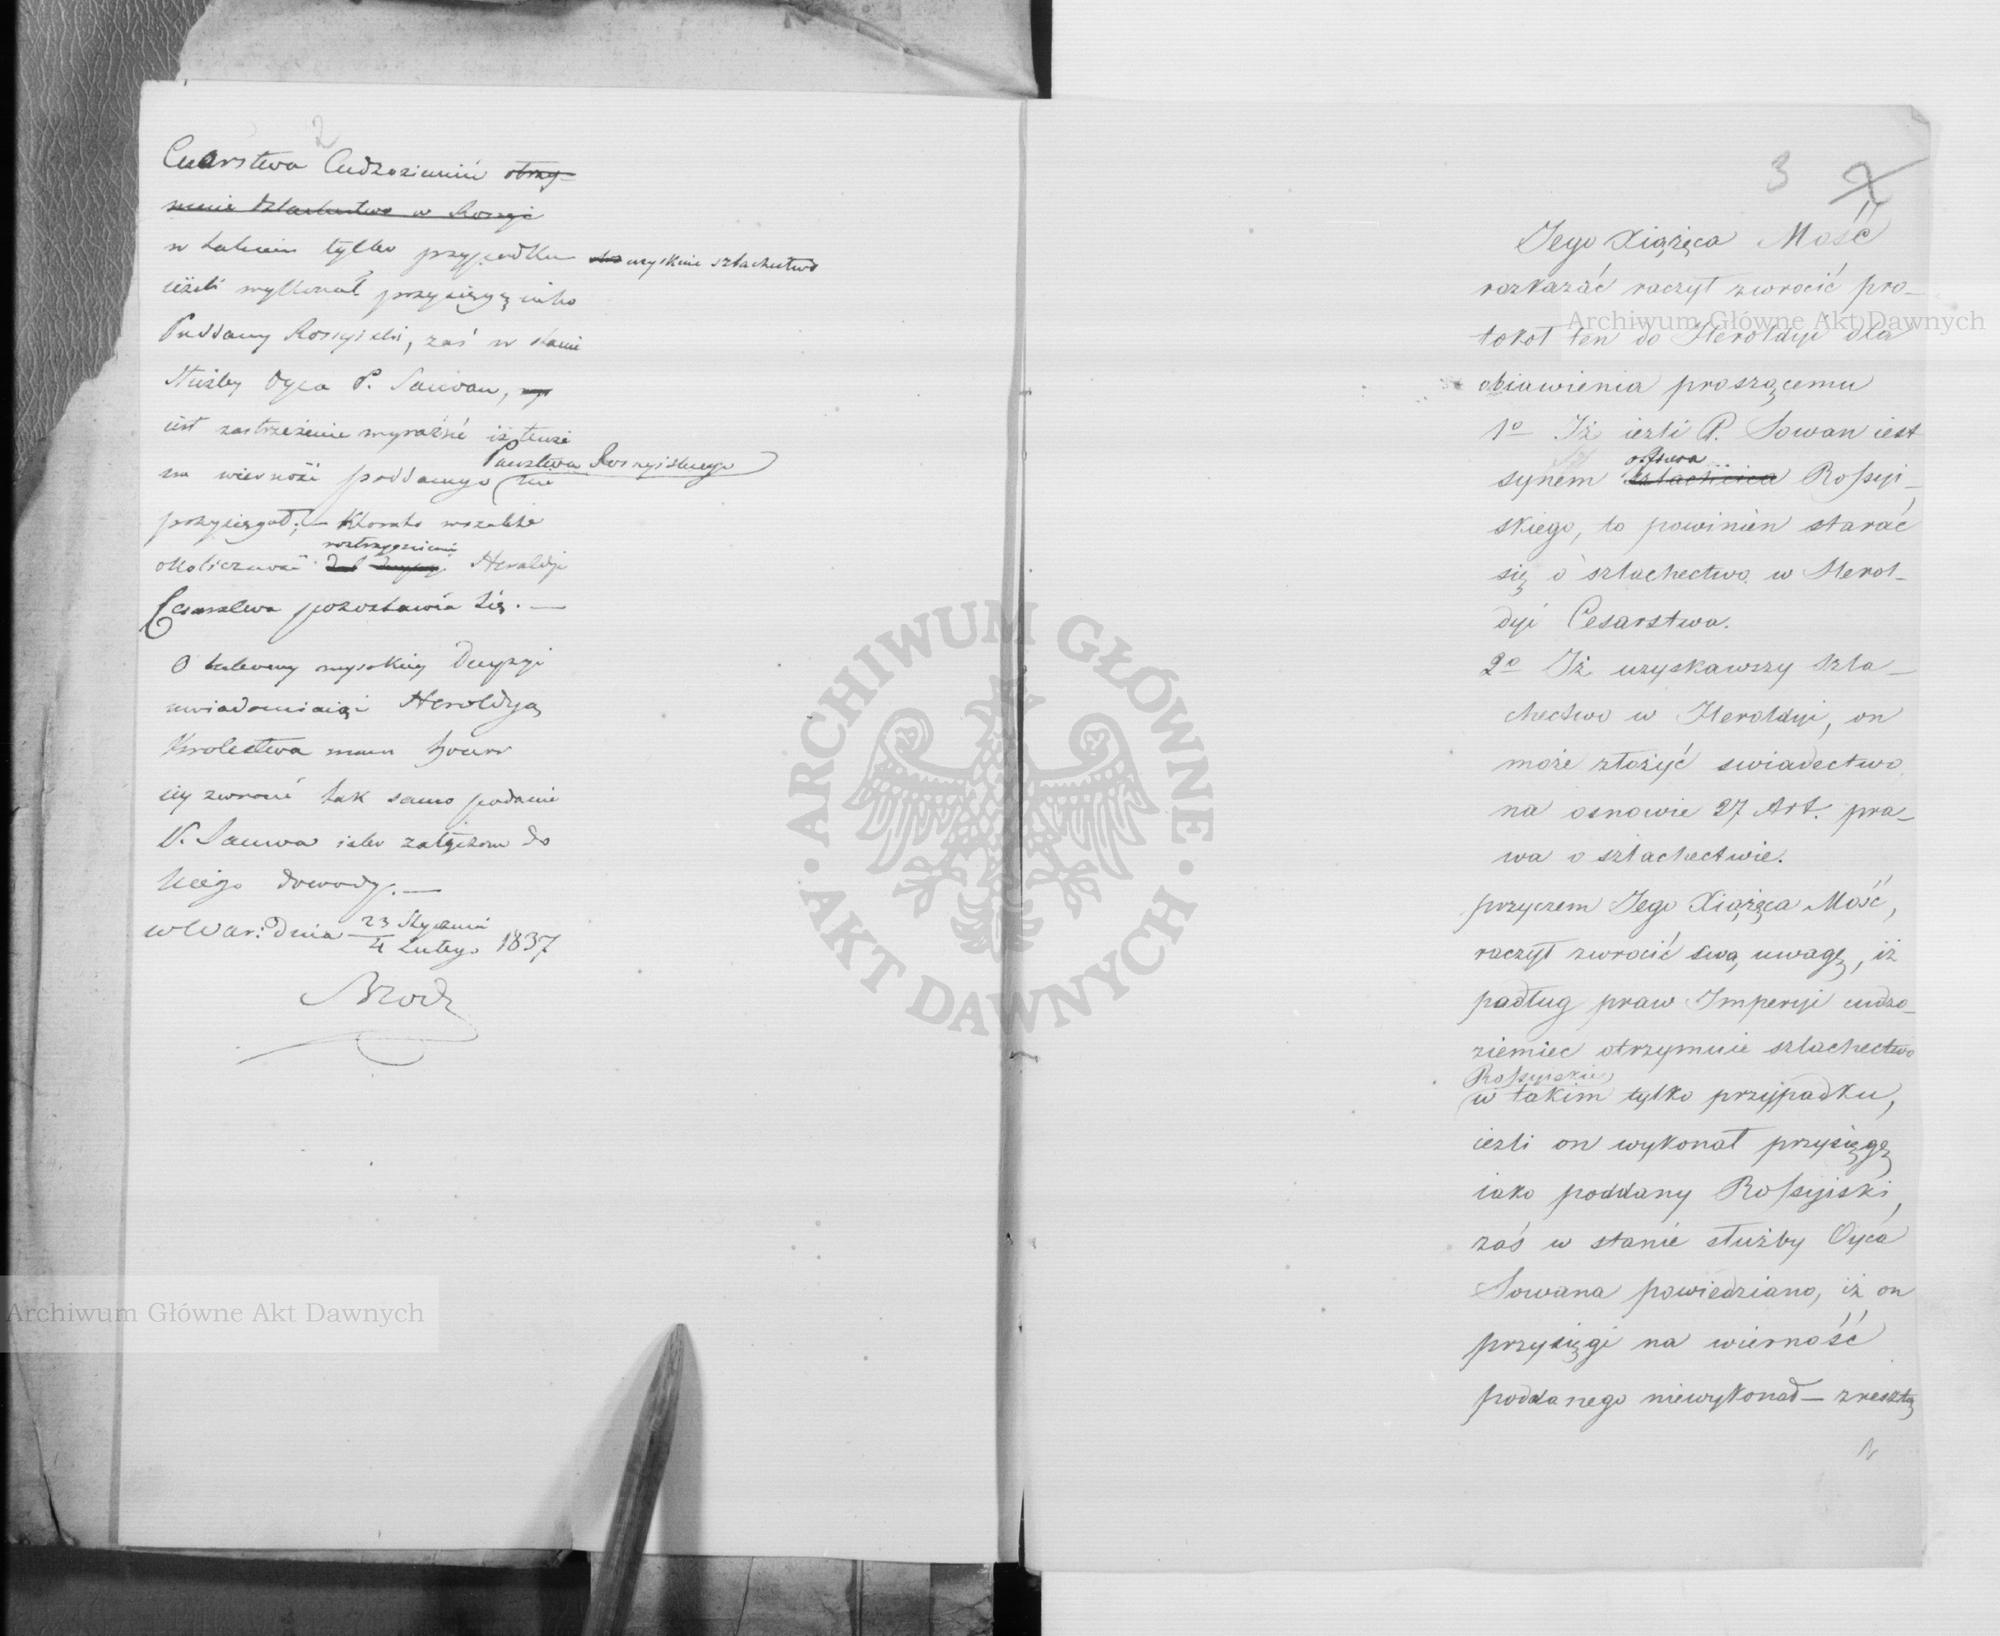 2
Cesarstwa Cudzoziemiec otrzy-
muie szlachectwo w Rossyi
w takim tylko przypadku uzyskuie szlachectwo
ieżeli wykonał przysięgę iako
Poddany Rossyiski, zaś w stanie
służby Oyca P. Sauvan,
iest zastrzeżenie wyraźne iż tenże
Państwa Rossyiskiego
na wierność poddanego nie
przysięgał; — Którato wszakże
rostrzygnieniu
okoliczność Heroldyi
Cesarstwa pozostawia się. —
O takowey wysokiey Decyzyi
uwiadomiaiąc Heroldyą
Krolestwa mam honor
iey zwrócić tak samo podanie
P. Sauvan iako załączone do
niego dowody. —
w War: dnia 23 Stycznia / 4 Lutego 1837
3
Jego Xiążęca Mość
rozkazać raczył zwrocić pro-
tokoł ten do Heroldyi dla
obiawienia proszącemu
1º Iż ieżli P. Sowan iest
officera
synem szlachcica Rossyi-
skiego, to powinien starać
się o szlachectwo w Herol-
dyi Cesarstwa.
2º Iż uzyskawszy szla-
chectwo w Heroldyi, on
może złożyć swiadectwo
na osnowie 27 Art. pra-
wa o szlachectwie.
przyczem Jego Xiążęca Mość,
raczył zwrocić swą uwagę, iż
podług praw Imperyi cudzo-
ziemiec otrzymuie szlachectwo
Rossyiskie
w takim tylko przypadku,
ieżli on wykonał przysięgę
iako poddany Rossyiski,
zaś w stanie służby Oyca
Sowana powiedziano, iż on
przysięgi na wierność
poddanego niewykonał — zresztą
Archiwum Główne Akt Dawnych
Archiwum Główne Akt Dawnych
ARCHIWUM GŁÓWNE AKT DAWNYCH